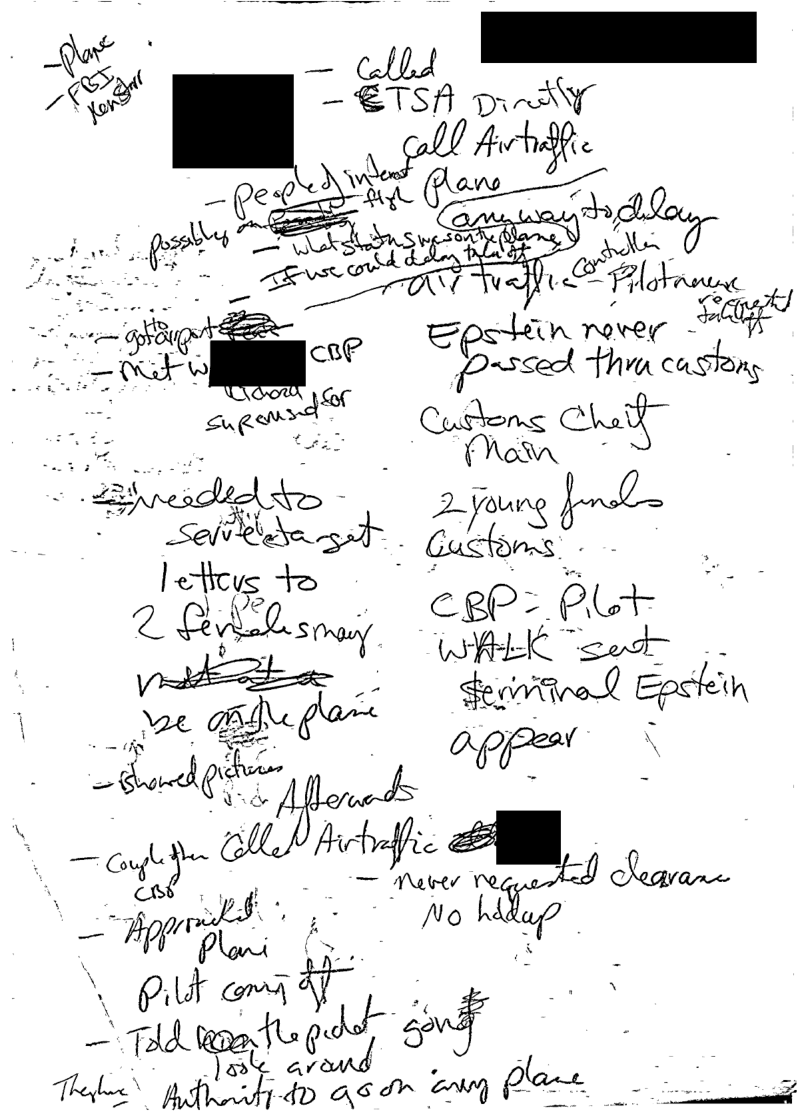 - Plane
- FBI
- Called
- TSA Directly
call Air traffic
- People of interest
possibly
plane
any way to delay
- what status was on the plane
- If we could delay take off
air traffic controller - Pilot never
requested
takeoff
- got to airport
- Met w
CBP
Richard
supervisor
Epstein never
passed thru customs
Customs Cheif
Main
- needed to
serve target
letters to
2 females may
be on the plane
2 young females
Customs
CBP = Pilot
WALK sent
terminal Epstein
appear
- showed pictures
Afterwards
- Couple of
CBP
Called Air traffic
- never requested clearance
No holdup
- Approached
Plane
Pilot coming off
- Told the pilot going
look around
Authority to go on any plane